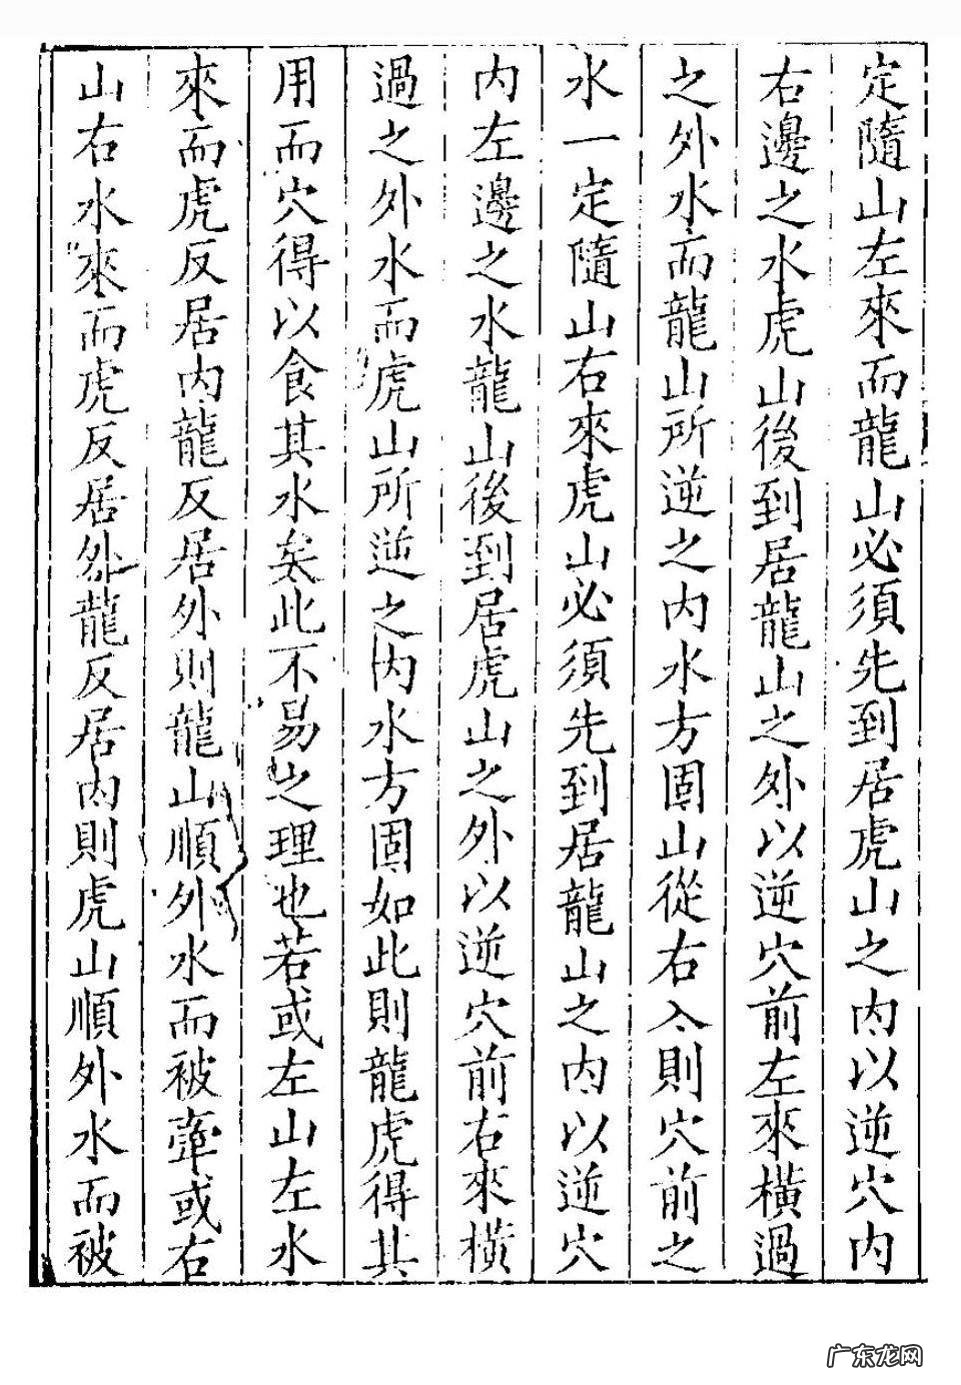 定隨山左來而龍山必須先到居虎山之内以逆穴内
右邊之水虎山後到居龍山之外以逆穴前左來橫過
之外水而龍山所逆之内水方固山從右入則穴前之
水一定隨山右來虎山必須先到居龍山之内以逆穴
内左邊之水龍山後到居虎山之外以逆穴前右來橫
過之外水而虎山所逆之内水方固如此則龍虎得其
用而穴得以食其水矣此不易之理也若或左山左水
來而虎反居内龍反居外則龍山順外水而被牽或右
山右水來而虎反居外龍反居内則虎山順外水而被
广东龙网